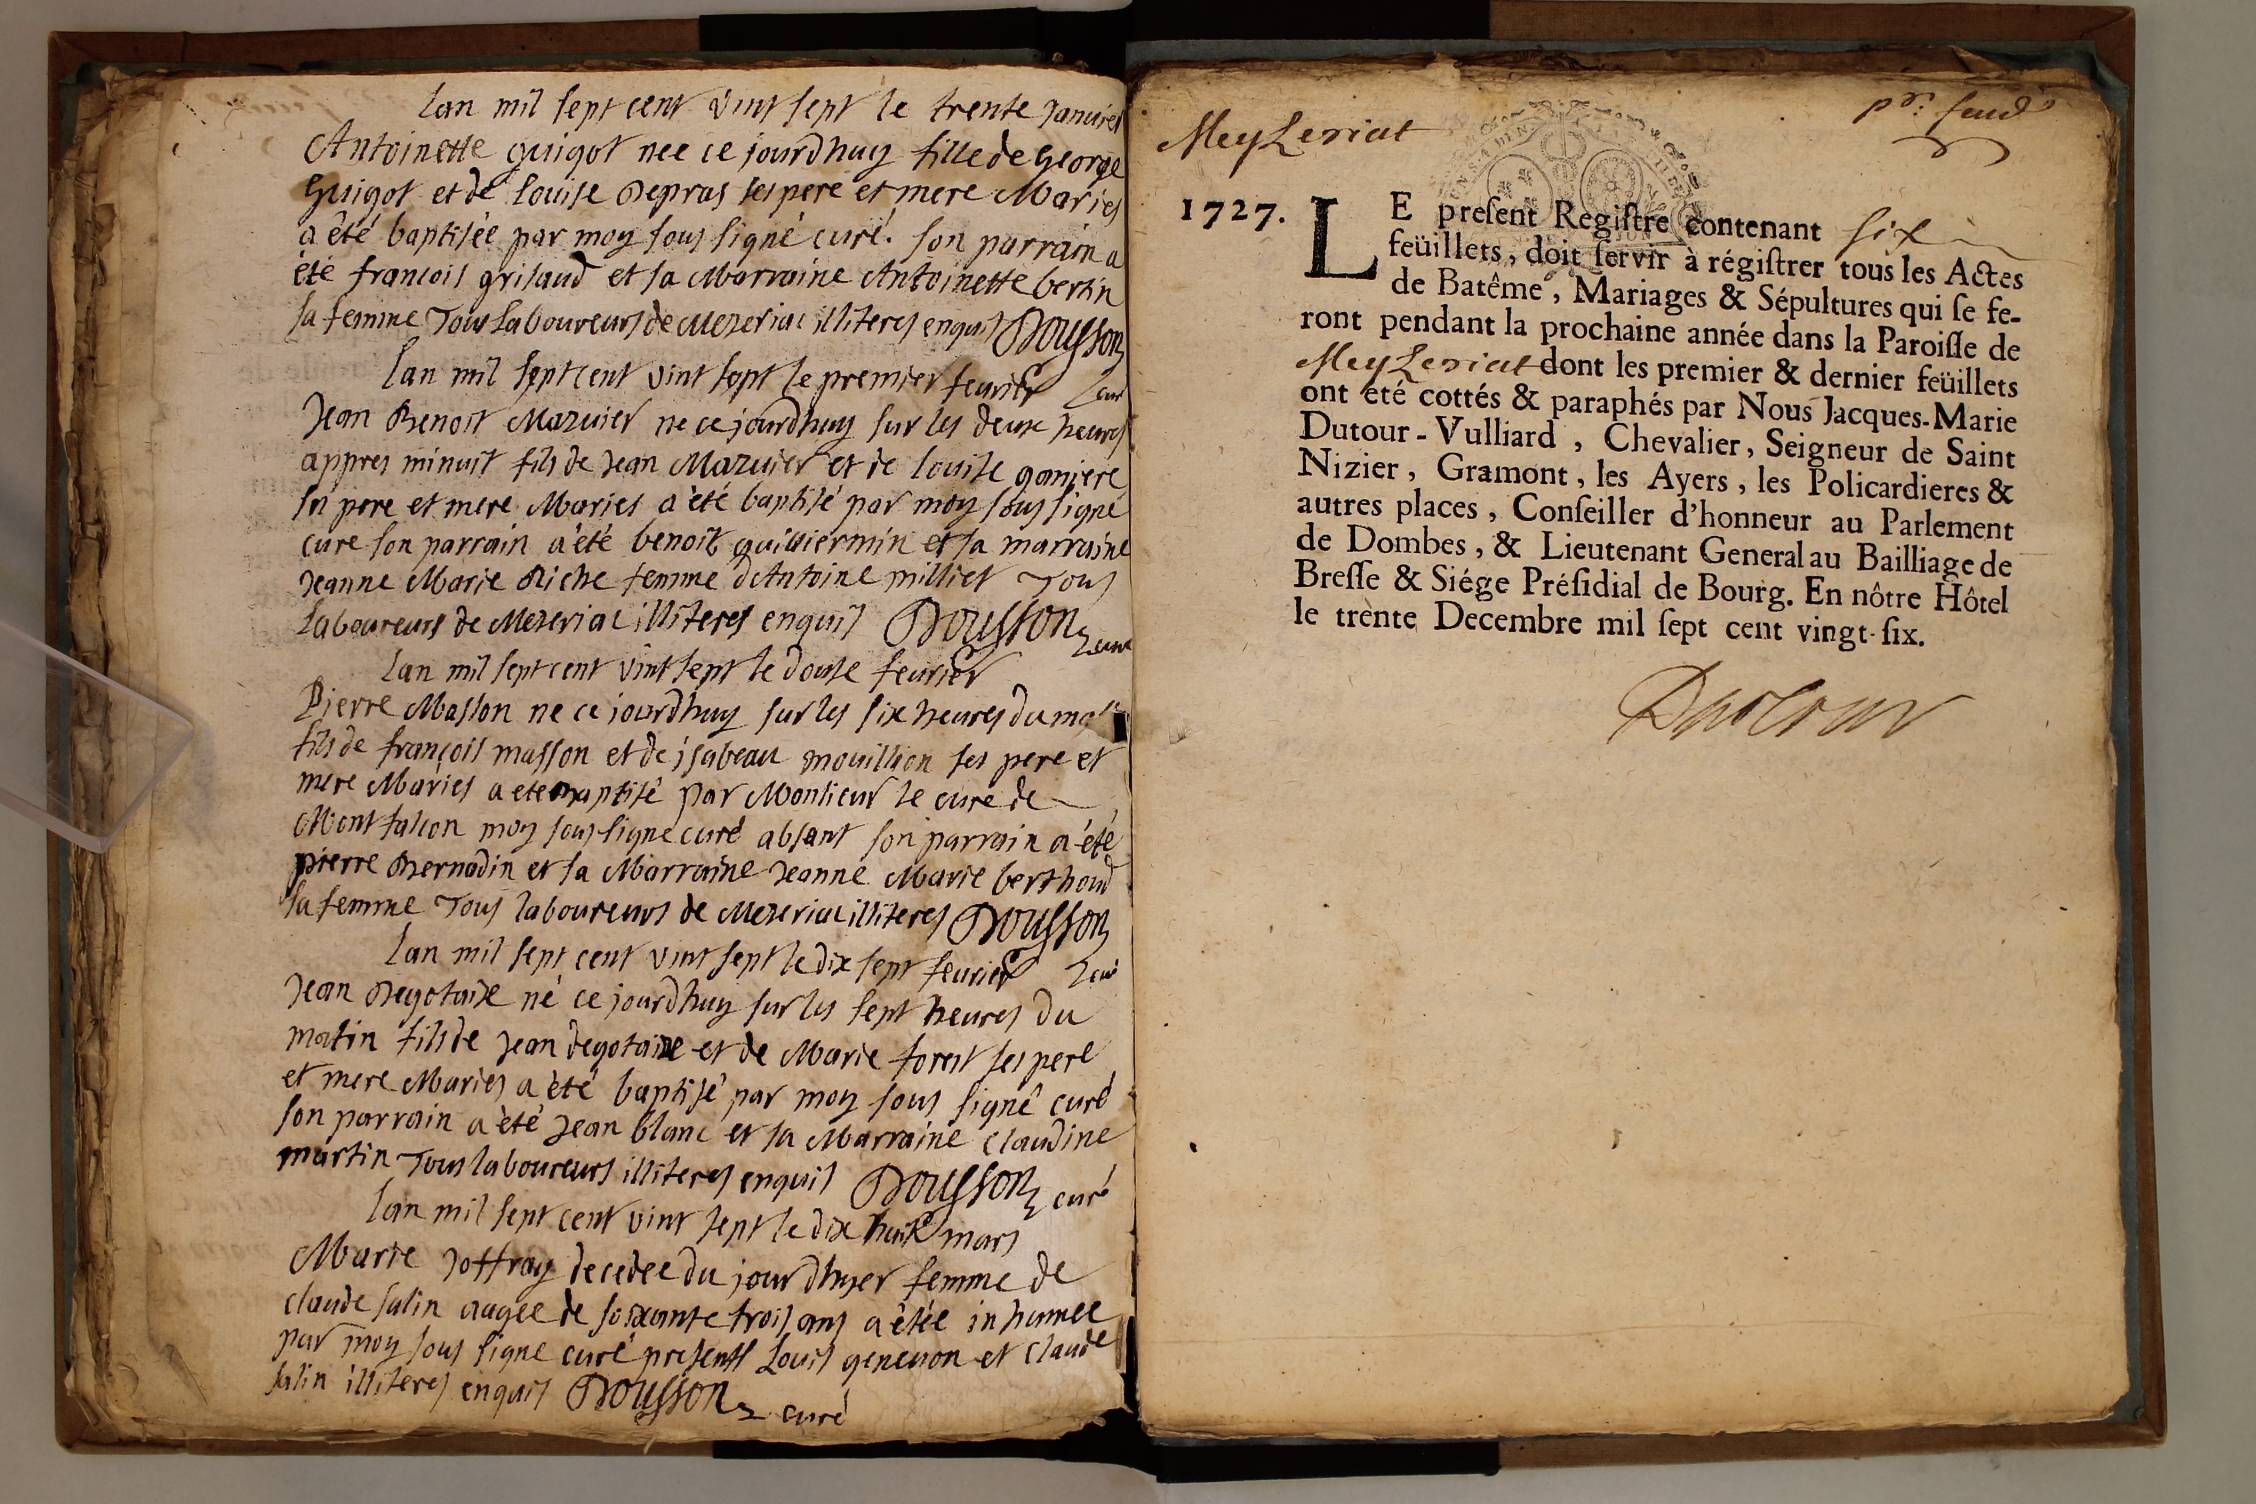 lan mil sept cent vint sept le trente janvier
Antoinette guigot nee ce jourdhuy fille de George
Guigot et de louise Depras ses pere et mere Maries
a êté baptisée par moy sous signé curé. son parrain a
été francois grisaud et sa Marraine Antoinette bertin
sa femme Tous Laboureurs de Mezeriac illiteres enquis Dousson
curé
lan mil sept cent vint sept le premier fevrier
Jean Benoit Mazuier ne ce jourdhuy sur les deux heures
appres minuit fils de Jean Mazuier et de louise ganiere
ses pere et mere Maries a été baptisé par moy sous signé
curé son parrain a été benoit guilliermin et sa marraine
Jeanne Marie Riche femme dAntoine milliet Tous
Laboureurs de Mezeriac illiteres enquis Dousson curé
lan mil sept cent vint sept le douse fevrier
Pierre Masson ne ce jourdhuy sur les six heures du
fils de françois masson et de jsabeau mouillion ses pere et
mere Maries a ete baptisé par Monsieur le curé de
Montfalcon moy sous signé curé absant son parrain a été
pierre Bernadin et sa Marraine Jeanne Marie berthoud
sa femme Tous laboureurs de Mezeriac illiteres Dousson
curé
lan mil sept cent vint sept le dix sept fevrier
Jean Degotaix né ce jourdhuy sur les sept heures du
matin fils de Jean degotaix et de Marie forest ses pere
et mere Maries a été baptisé par moy sous signé curé
son parrain a été Jean blanc et sa Marraine Claudine
martin Tous laboureurs illiteres enquis Dousson curé
lan mil sept cent vint sept le dix huit mars
Marie Joffray decedee du jour dhyer femme de
claude salin aagee de soixante trois ans a êtée inhumee
par moy sous signé curé presents Louis genevon et Claude
salin illiteres enquis Dousson curé
MeyZeriat
1727.
LE preſent Regiſtre contenant six
feüillets, doit ſervir à régiſtrer tous les Actes
de Batême, Mariages & Sépultures qui ſe fe-
ront pendant la prochaine année dans la Paroiſſe de
MeyZeriat dont les premier & dernier feüillets
ont été cottés & paraphés par Nous Jacques-Marie
Dutour-Vulliard, Chevalier, Seigneur de Saint
Nizier, Gramont, les Ayers, les Policardieres &
autres places, Conſeiller d'honneur au Parlement
de Dombes, & Lieutenant General au Bailliage de
Breſſe & Siége Préſidial de Bourg. En nôtre Hôtel
le trente Decembre mil ſept cent vingt-ſix.
Dutour